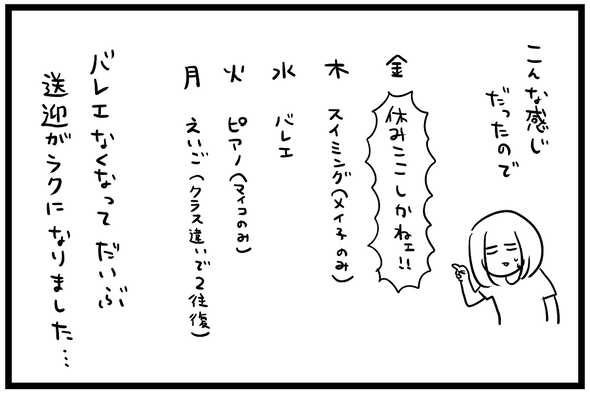 こんな感じ
だったので
金 休みここしかねェ!!
木 スイミング(メイ子のみ)
水 バレエ
火 ピアノ(マイコのみ)
月 えいご(クラス違いで2往復)
バレエなくなってだいぶ
送迎がラクになりました…